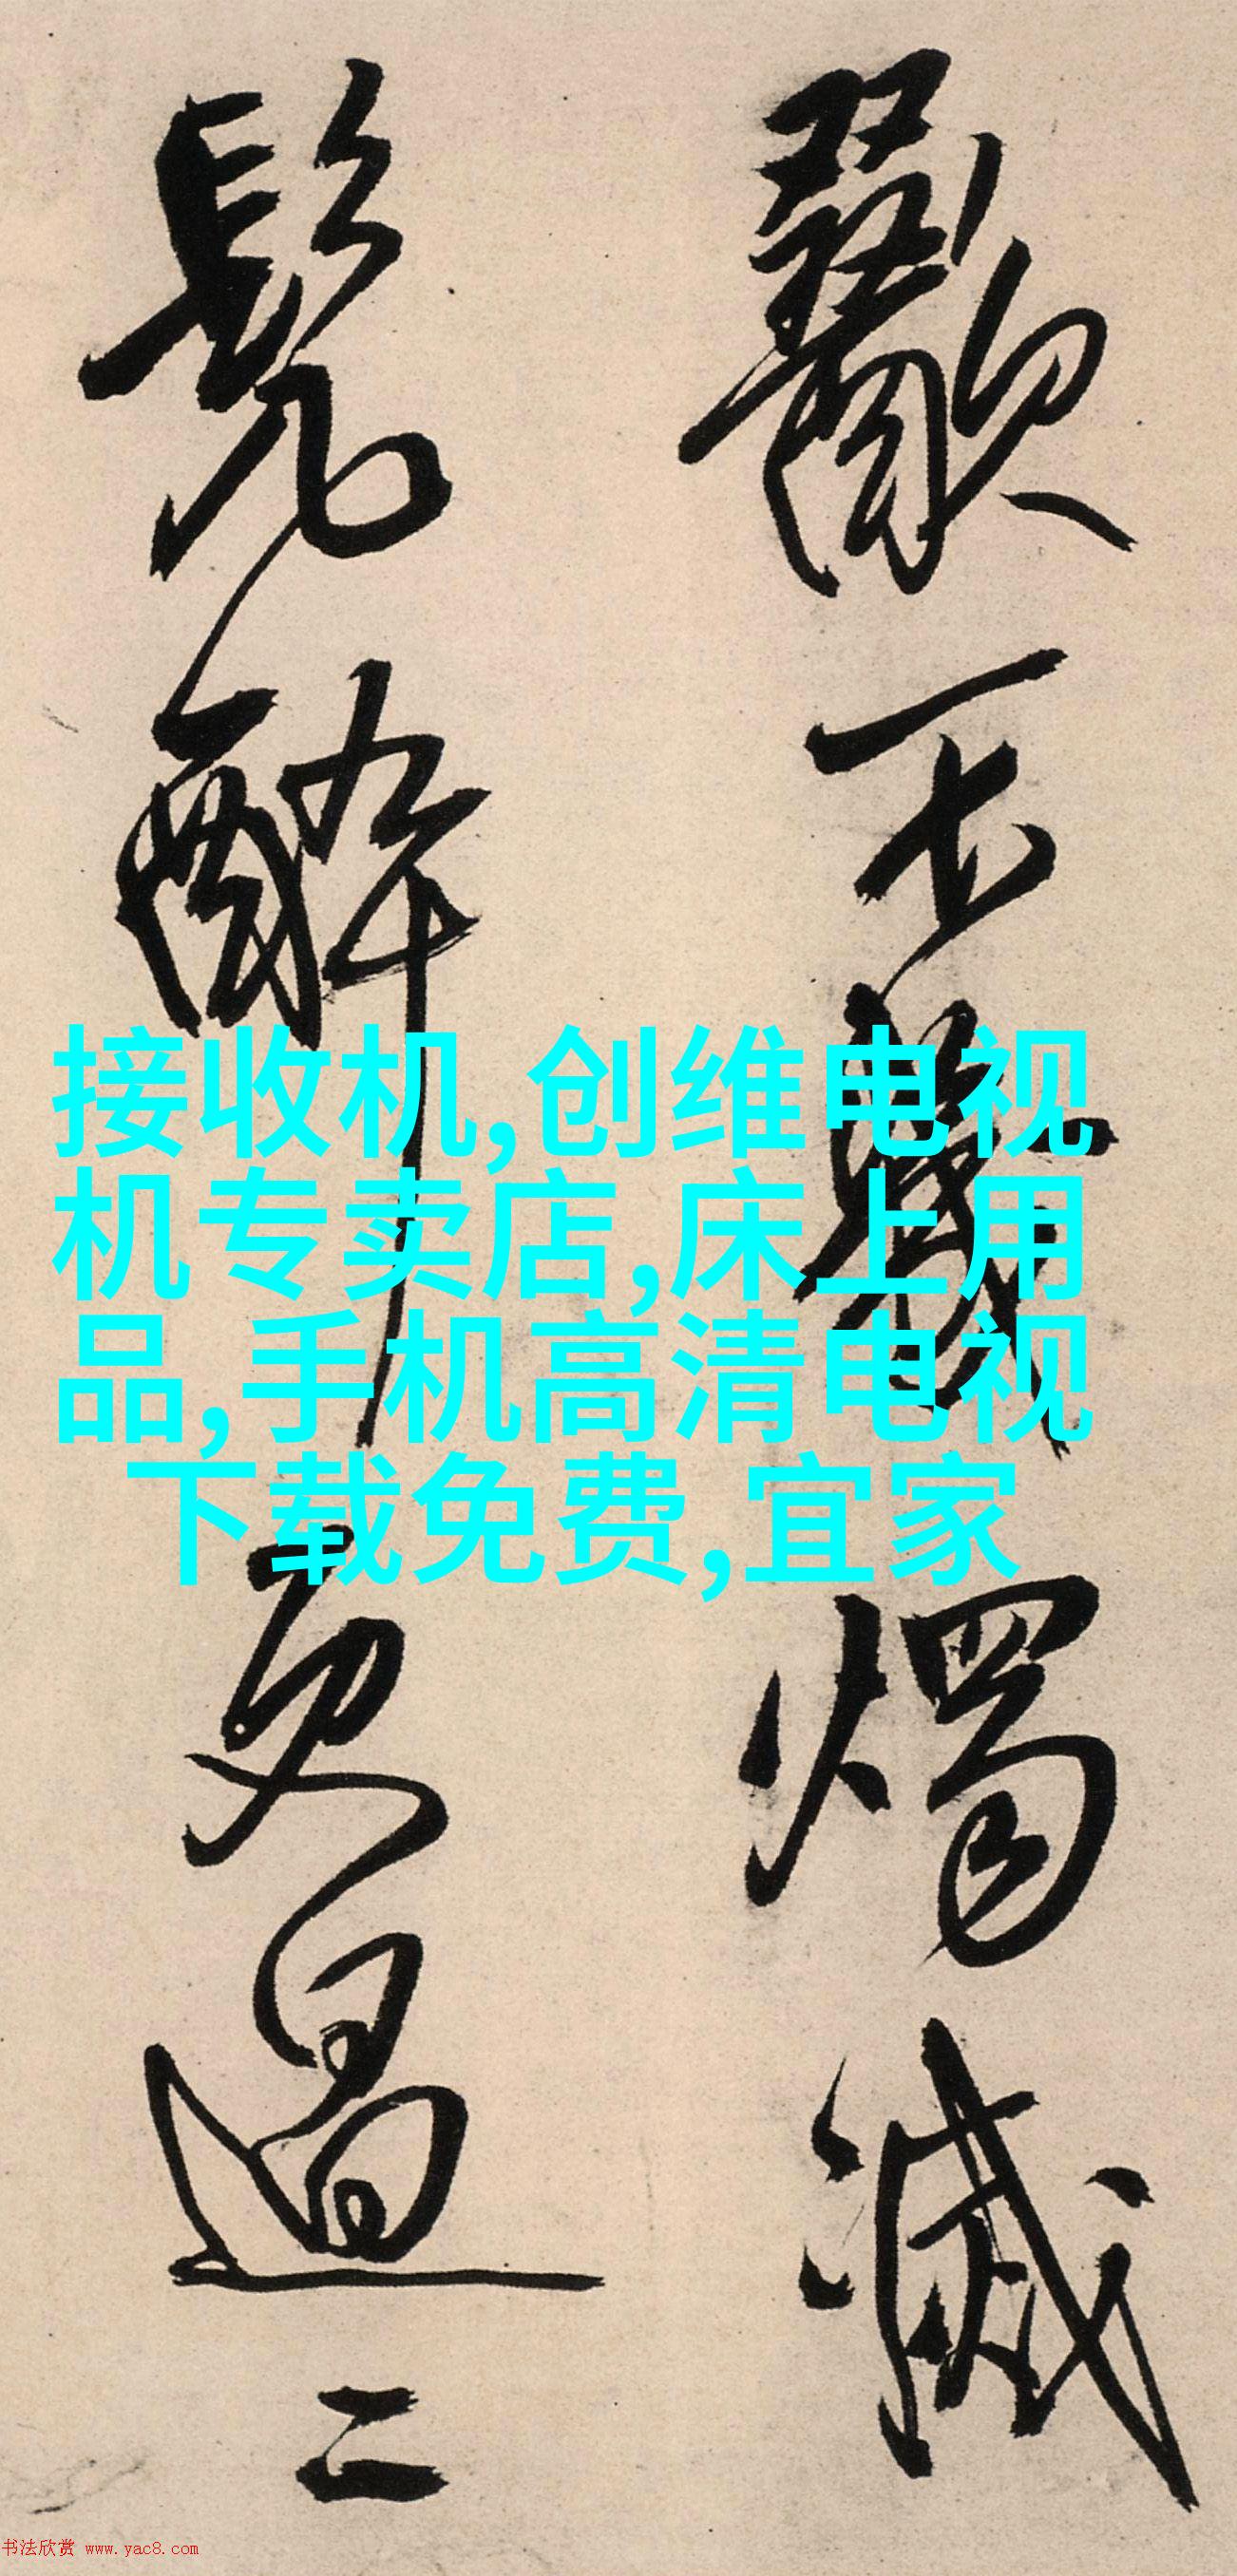 歠不幾燭滅
鬢醉更過二
接收机,创维电视
机专卖店,床上用
品,手机高清电视
下载免费,宜家
书法欣赏 www.yac8.com